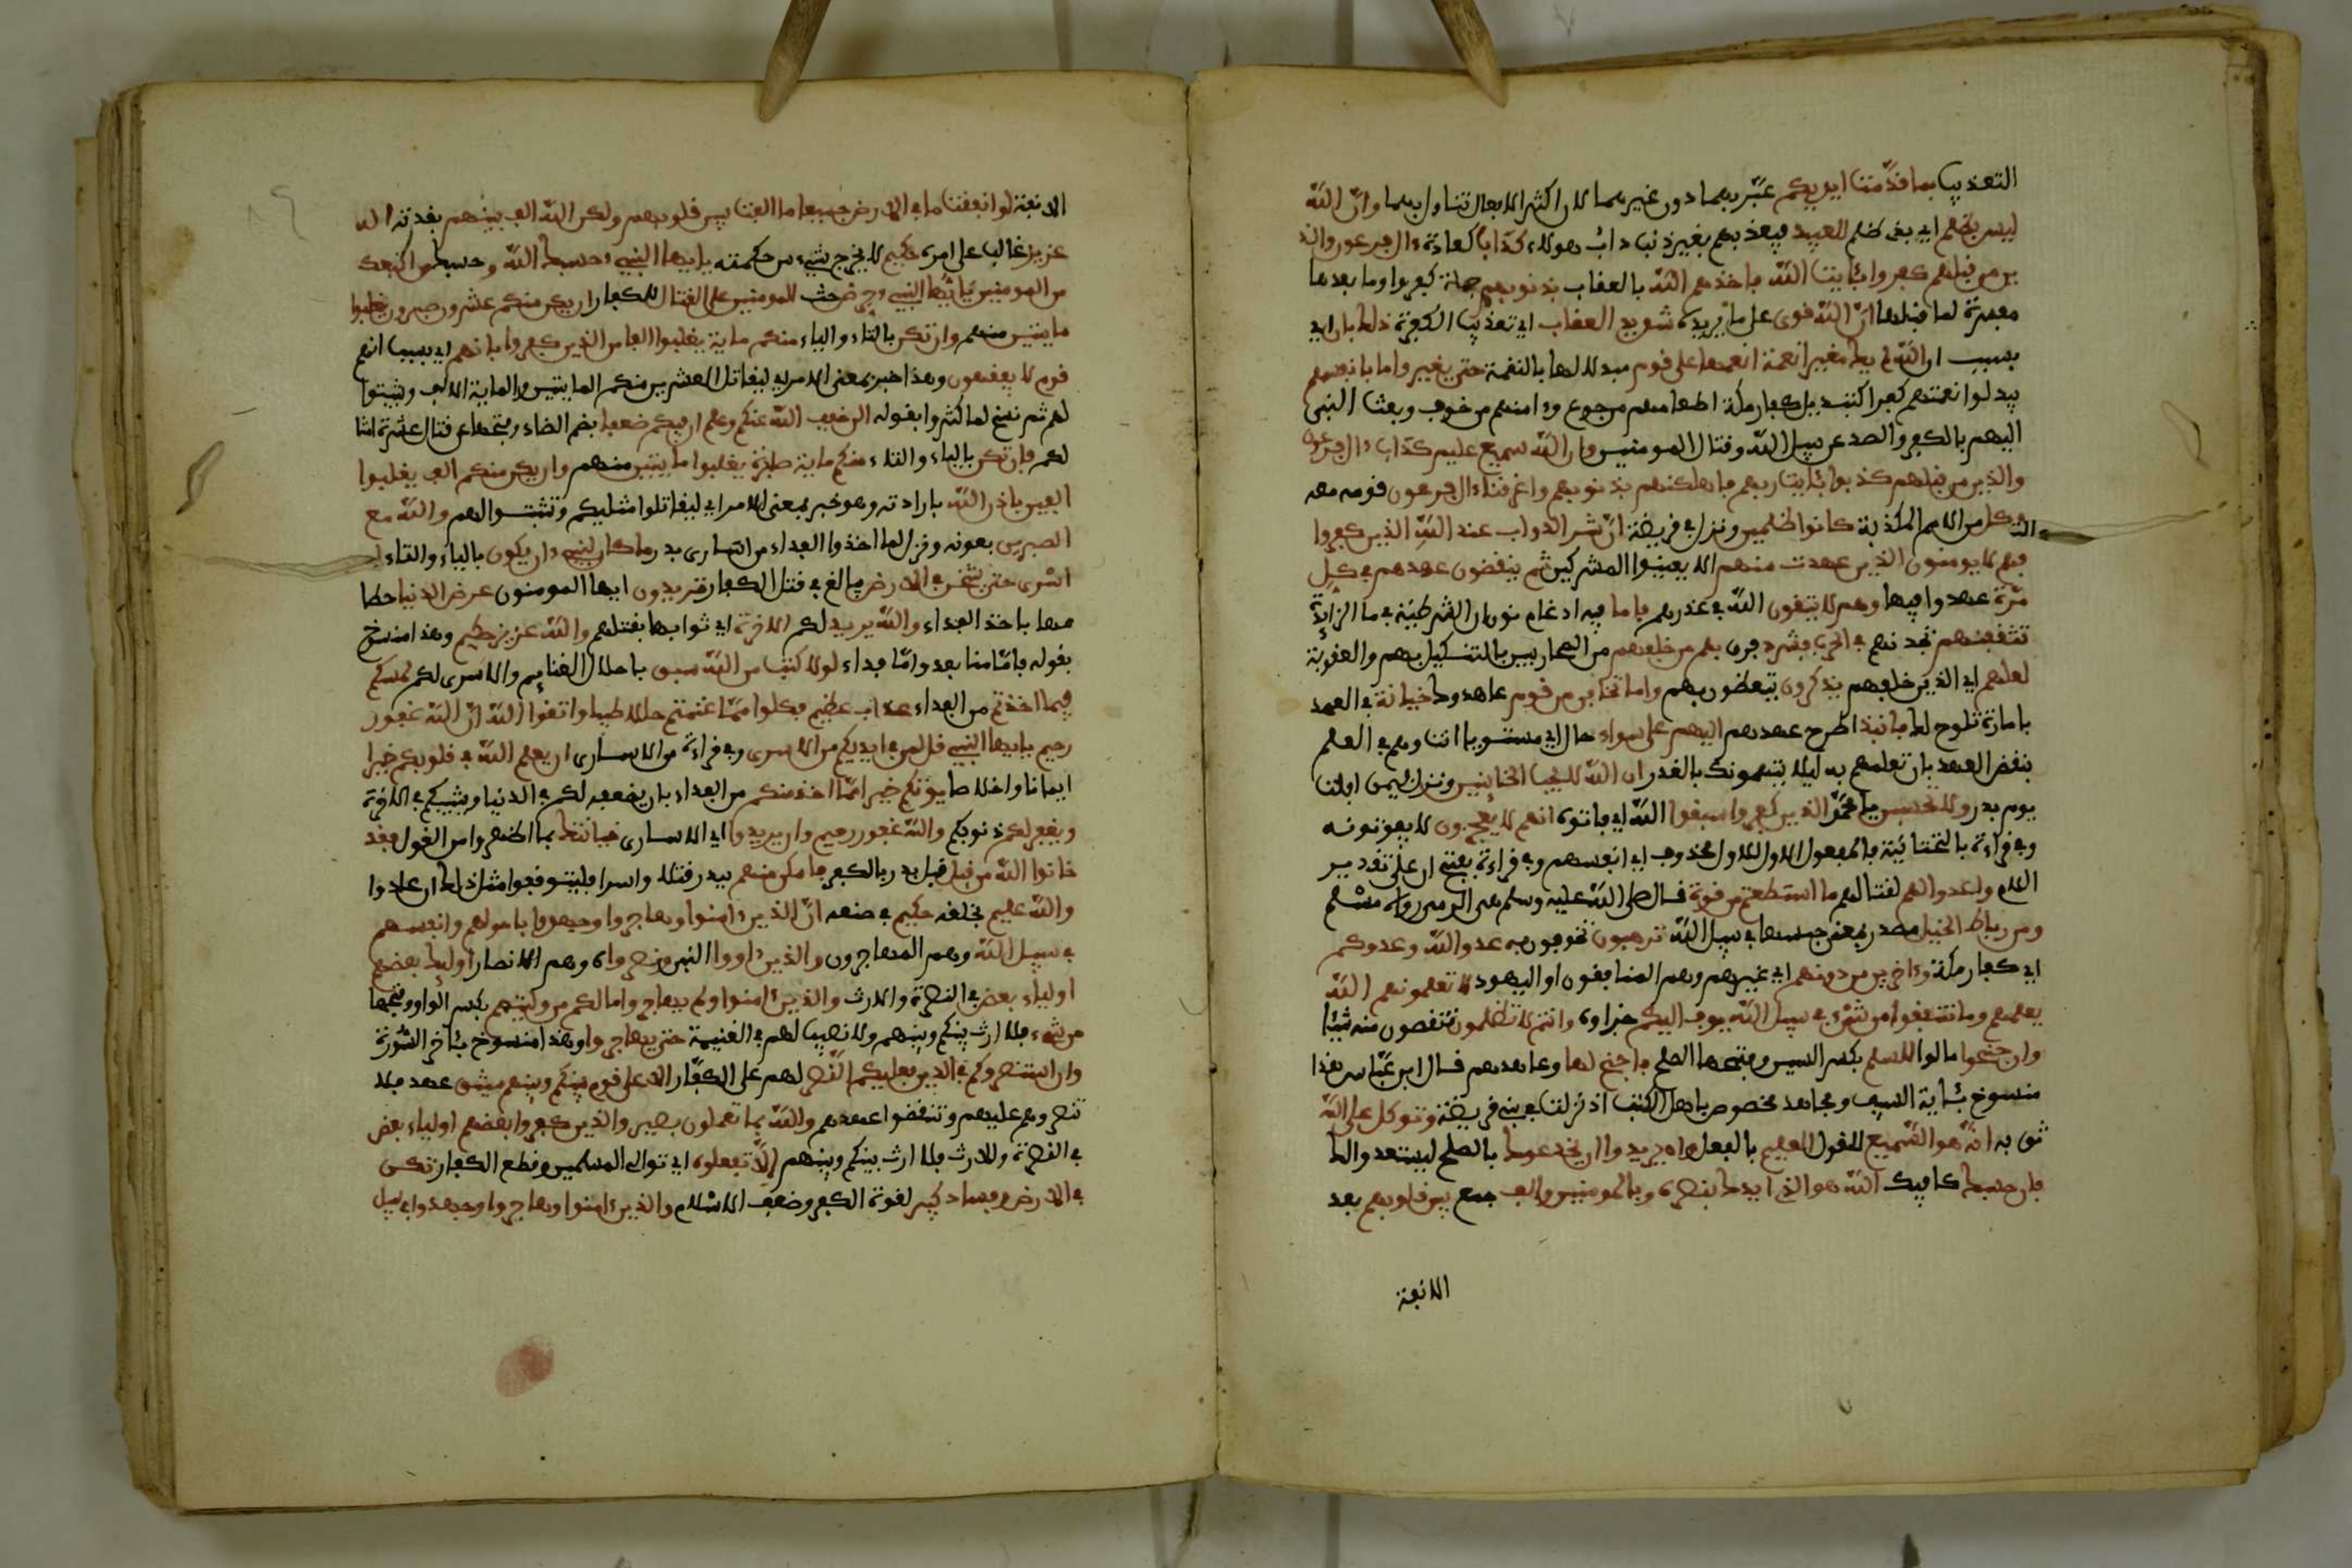 التعذيب بما قدّمت ايديكم عبّر بهما دون غيرهما لان اكثر الافعال تناول بهما وانّ اللّه
ليس بظلم اي بذي ظلم للعبيد فيعذبهم بغير ذنب داب هولاء كداب كعادة ءال فرعون والذ
ين من قبلهم كفروا بئايت اللّه فاخذهم اللّه بالعقاب بذنوبهم جملة كفروا وما بعدها
مفسرة لما قبلها انّ اللّه قوي على ما يريده شديد العقاب اي تعذيب الكفرة ذلك بان اي
بسبب ان اللّه لم يك مغيرا نعمة انعمها على قوم مبدلا لها بالنقمة حتى يغيروا ما بانفسهم
يبدلوا نعمتهم كفرا كتبديل كفار مكة اطعامهم من جوع وءامنهم من خوف وبعث النبي
اليهم بالكفر والصد عن سبيل اللّه وقتال المومنين وان اللّه سميع عليم كداب ءال فرعون
والذين من قبلهم كذبوا بئايت ربهم فاهلكنهم بذنوبهم واغرقنا ءال فرعون قومه معه
وكل من الامم المكذبة كانوا ظلمين ونزل في قريظة انّ شر الدواب عند اللّه الذين كفروا
فهم لا يومنون الذين عهدت منهم الا يعينوا المشركين ثم ينقضون عهدهم في كل
مرّة عهدوا فيها وهم لا يتقون اللّه في غدرهم فاما فيه ادغام نون ان الشرطية في ما الزايدة
تثقفنهم تجدنهم في الحرب فشرد فرق بهم من خلفهم من المحاربين بالتنكيل بهم والعقوبة
لعلهم اي الذين خلفهم يذكرون يتعظون بهم واما تخافن من قوم عاهدوك خيانة في العهد
بامارة تلوح لك فانبذ اطرح عهدهم اليهم على سواء حال اي مستويا انت وهم في العلم
بنقض العهد بان تعلمهم به ليلا يتهمونك بالغدر ان اللّه لا يحب الخاينين ونزل فيمن افلت
يوم بدر ولا تحسبن يا محمّد الذين كفروا سبقوا اللّه اي فاتوه انهم لا يعجزون لا يفوتونه
وفي قراءة بالتحتانية فالمفعول الاول محذوف اي انفسهم وفي قراءة بفتح ان على تقدير
اللام واعدوا لهم لقتالهم ما استطعتم من قوة قال صلى اللّه عليه وسلم هي الرمي رواه مسلم
ومن رباط الخيل مصدر بمعنى حبسها في سبيل اللّه ترهبون تخوفون به عدو اللّه وعدوكم
اي كفار مكة وءاخرين من دونهم اي غيرهم وهم المنافقون او اليهود لا تعلمونهم اللّه
يعلمهم وما تنفقوا من شيء في سبيل اللّه يوف اليكم جزاوه وانتم لا تظلمون تنقصون منه شيئا
وان جنحوا مالوا للسلم بكسر السين وفتحها الصلح فاجنح لها وعاهدهم قال ابن عبّاس هذا
منسوخ بئاية السيف ومجاهد مخصوص باهل الكتب اذ نزلت في بني قريظة وتوكل على اللّه
ثق به انّه هو السّميع للقول العليم بالفعل وان يريدوا ان يخدعوك بالصلح ليستعدوا لك
فان حسبك كافيك اللّه هو الذي ايدك بنصره وبالمومنين والف جمع بين قلوبهم بعد
الانفة
الانفة لو انفقت ما في الارض جميعا ما الفت بين قلوبهم ولكن اللّه الف بينهم بقدرته انه
عزيز غالب على امره حكيم لا يخرج شيء من حكمته يايها النبيء حسبك اللّه وحسبك من اتبعك
من المومنين يايّها النبيء حرض حث المومنين على القتال للكفار ان يكن منكم عشرون صبرون يغلبوا
مايتين منهم وان تكن بالتاء والياء منكم ماية يغلبوا الفا من الذين كفروا بانهم اي بسبب انهم
قوم لا يفقهون وهذا خبر بمعنى الامر اي ليقاتل العشرين منكم المايتين والماية الالف ويثبتوا
لهم ثم نسخ لما كثروا بقوله الن خفف اللّه عنكم وعلم ان فيكم ضعفا بضم الضاد وفتحها عن قتال عشرة امثا
لكم فان تكن بالياء والتاء منكم ماية صابرة يغلبوا مايتين منهم وان يكن منكم الف يغلبوا
الفين باذن اللّه بارادته وهو خبر بمعنى الامر اي ليقاتلوا مثليكم وتثبتوا لهم واللّه مع
الصبرين بعونه ونزل لما اخذوا الفداء من اسارى بدر ما كان لنبيء ان يكون بالياء والتاء له
اسرى حتى يثخن في الارض يبالغ في قتل الكفار تريدون ايها المومنون عرض الدنيا حطا
مها باخذ الفداء واللّه يريد لكم الاخرة اي ثوابها بقتلهم واللّه عزيز حكيم وهذا منسوخ
بقوله فامّا منا بعد وامّا فداء لولا كتب من اللّه سبق باحلال الغنايم والاسرى لكم لمسكم
فيما اخذتم من الفداء عذاب عظيم فكلوا ممّا غنمتم حللا طيبا واتقوا اللّه انّ اللّه غفور
رحيم يايها النبيء قل لمن في ايديكم من الاسرى وفي قراءة من الاسارى ان يعلم اللّه في قلوبكم خيرا
ايمانا واخلاصا يوتكم خيرا ممّا اخذ منكم من الفداء بان يضعفه لكم في الدنيا ويثيبكم في الاخرة
ويغفر لكم ذنوبكم واللّه غفور رحيم وان يريدوا اي الاسارى خيانتك بما اظهروا من القول فقد
خانوا اللّه من قبل قبل بدر بالكفر فامكن منهم ببدر قتلا واسرا فليتوقعوا مثل ذلك ان عادوا
واللّه عليم بخلقه حكيم في صنعه انّ الذين ءامنوا وهاجروا وجهدوا باموالهم وانفسهم
في سبيل اللّه وهم المهاجرون والذين ءاووا النبي ونصروا وهم الانصار اوليك بعضهم
اولياء بعض في النصرة والارث والذين ءامنوا ولم يهاجروا ما لكم من وليتهم بكسر الواو وفتحها
من شيء فلا ارث بينكم وبينهم ولا نصيب لهم في الغنيمة حتى يهاجروا وهذا منسوخ بئاخر السّورة
وان استنصروكم في الدين فعليكم النّصر لهم على الكفّار الا على قوم بينكم وبينهم ميثق عهد فلا
تنصروهم عليهم وتنقضوا عهدهم واللّه بما تعملون بصير والذين كفروا بعضهم اولياء بعض
في النصرة والارث فلا ارث بينكم وبينهم الّا تفعلوه اي توالي المسلمين وقطع الكفار تكن
في الارض وفساد كبير لقوة الكفر وضعف الاسلام والذين ءامنوا وهاجروا وجهدوا في سبيل